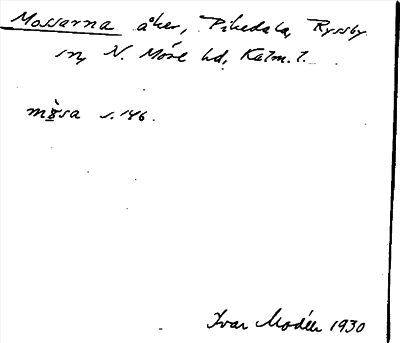 Mossarna åker, Pikedala, Ryssby
sn, N. Möre hd, Kalm. l.
mòsa s. 146.
Ivar Modéer 1930